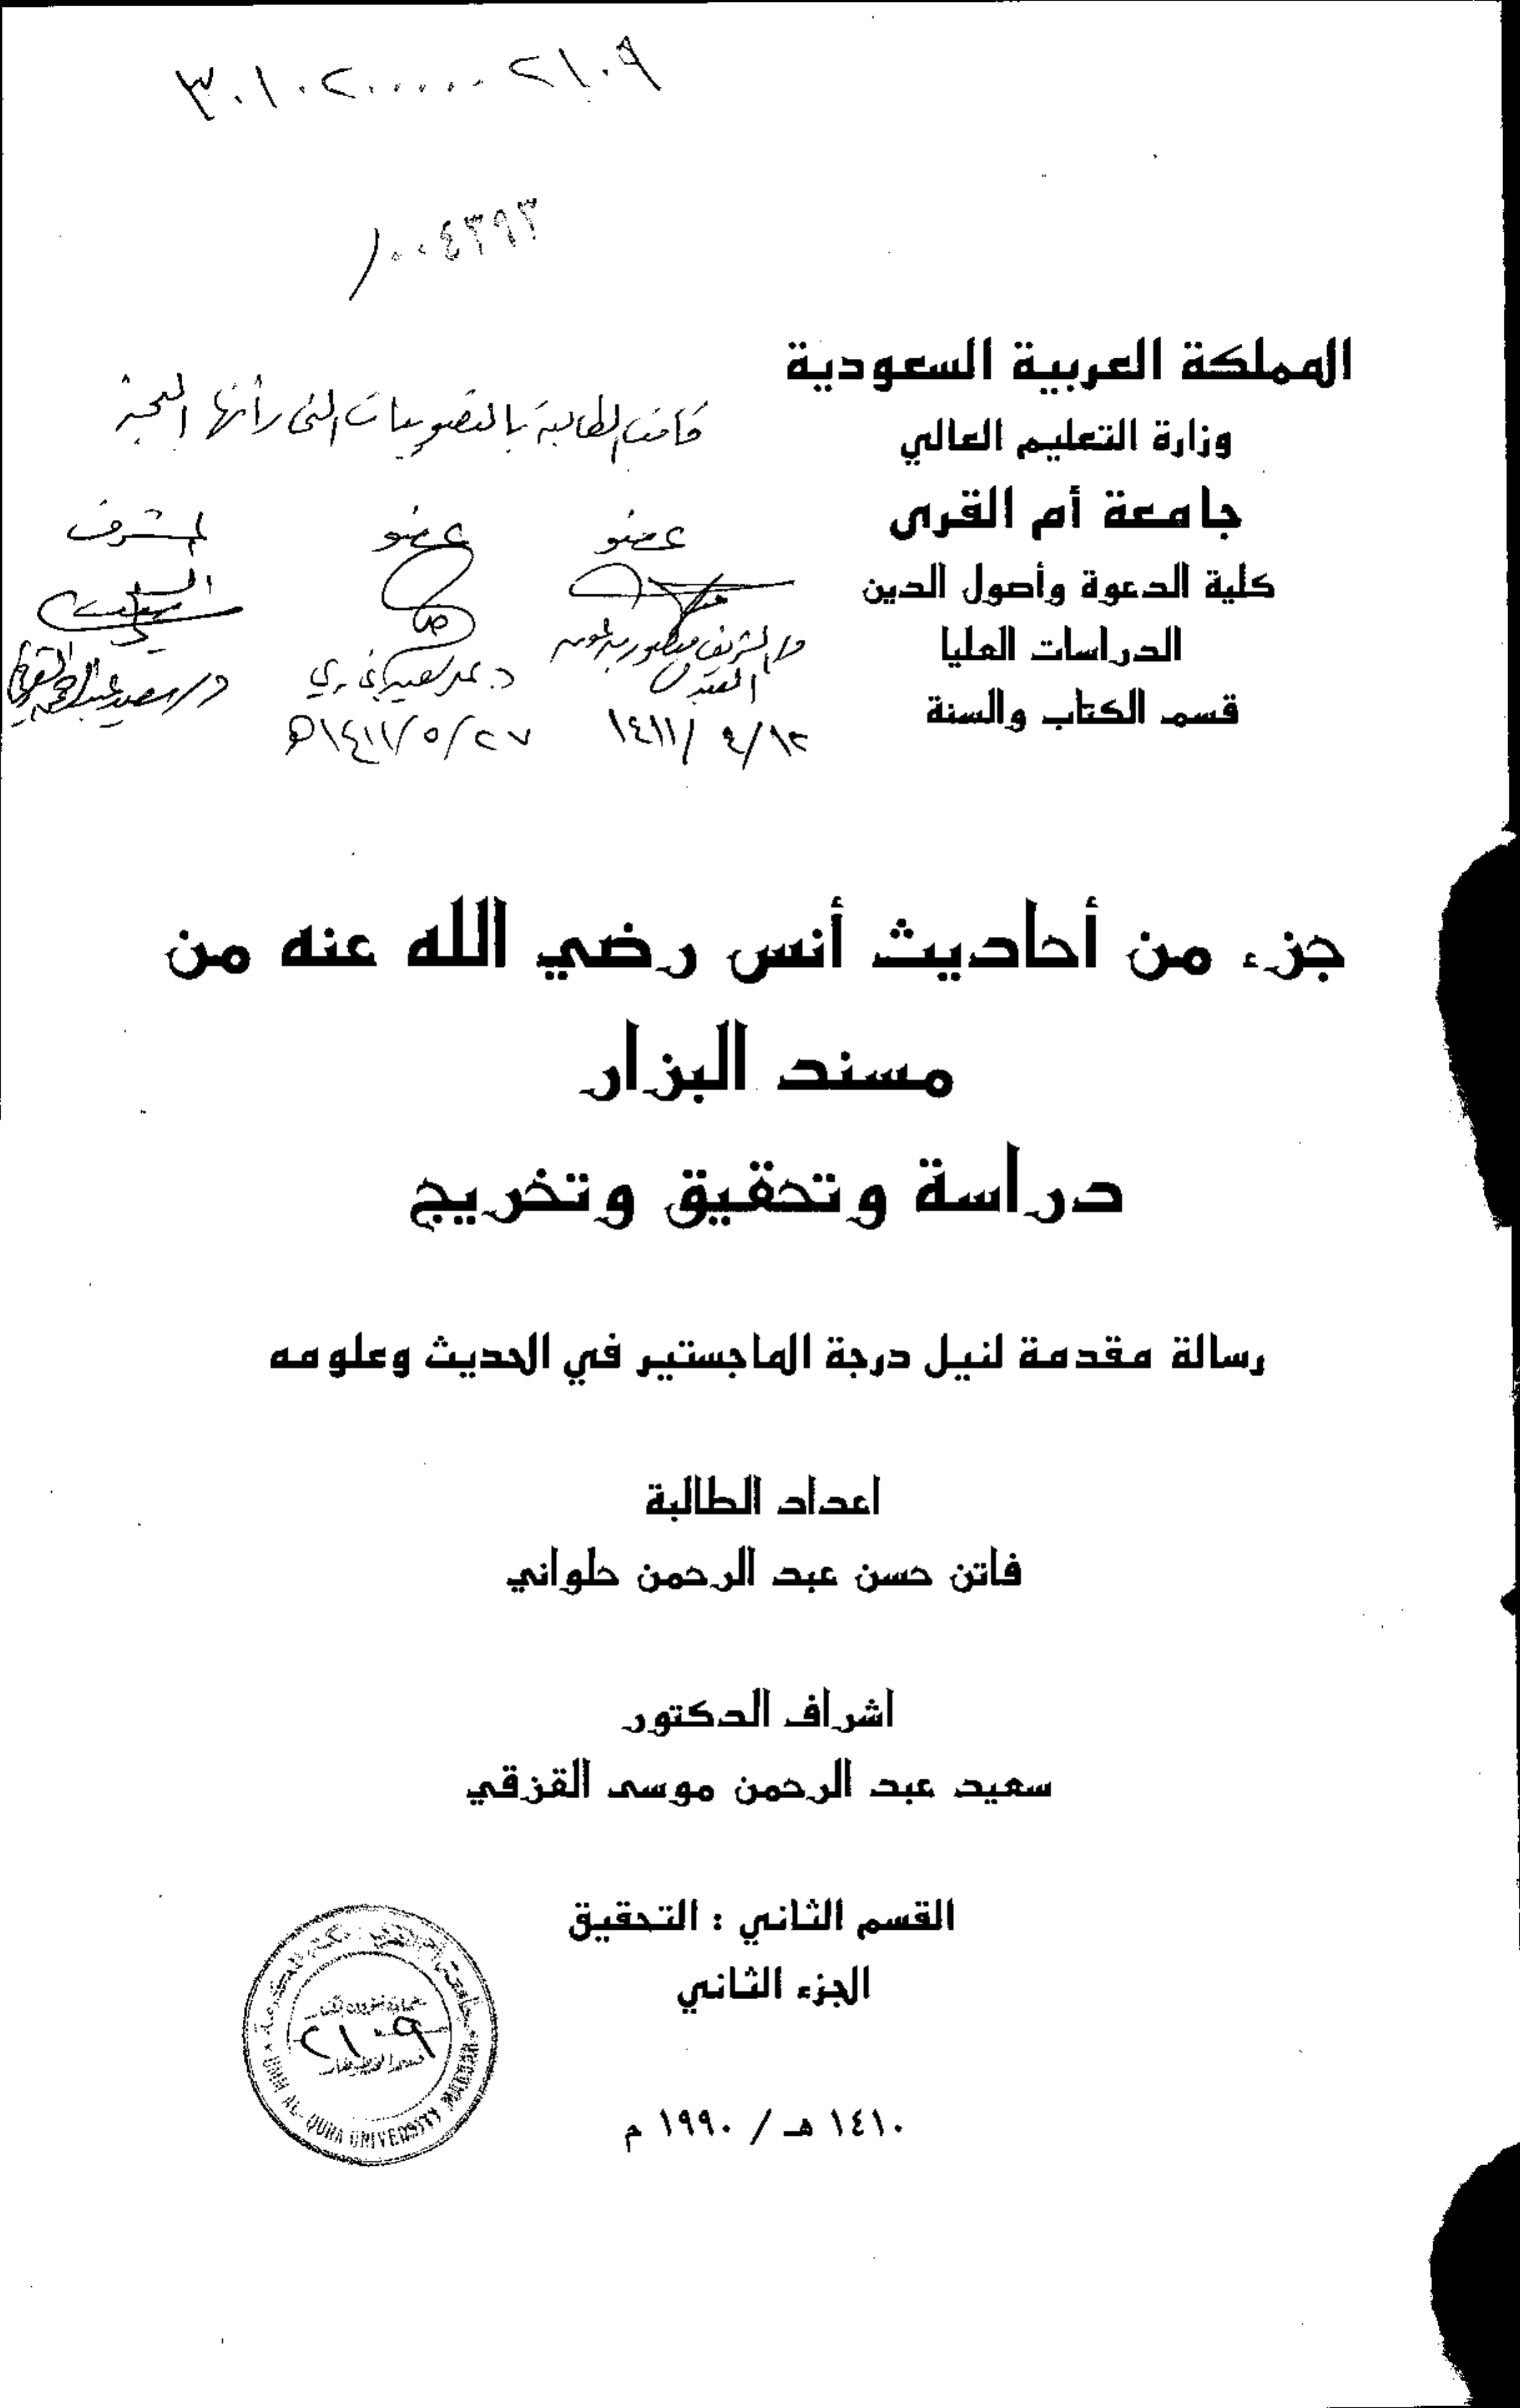 ٣٠١٠٢٠٠٠٠٠٠٢١٠٩
٠٠٤٣٩٣
المملكة العربية السعودية
وزارة التعليم العالي
جامعة أم القرى
كلية الدعوة وأصول الدين
الدراسات العليا
قسم الكتاب والسنة
قامت الطالبة بالتصويبات التي رأتها اللجنة
عضو
عضو
المشرف
١٤١١/٤/١٢
١٤١١/٥/٢٧هـ
جزء من أحاديث أنس رضي الله عنه من
مسند البزار
دراسة وتحقيق وتخريج
رسالة مقدمة لنيل درجة الماجستير في الحديث وعلومه
اعداد الطالبة
فاتن حسن عبد الرحمن حلواني
اشراف الدكتور
سعيد عبد الرحمن موسى القزقي
القسم الثاني : التحقيق
الجزء الثاني
١٤١٠ هـ / ١٩٩٠ م
٢١٠٩
UMM AL-QURA UNIVERSITY MAKKAH